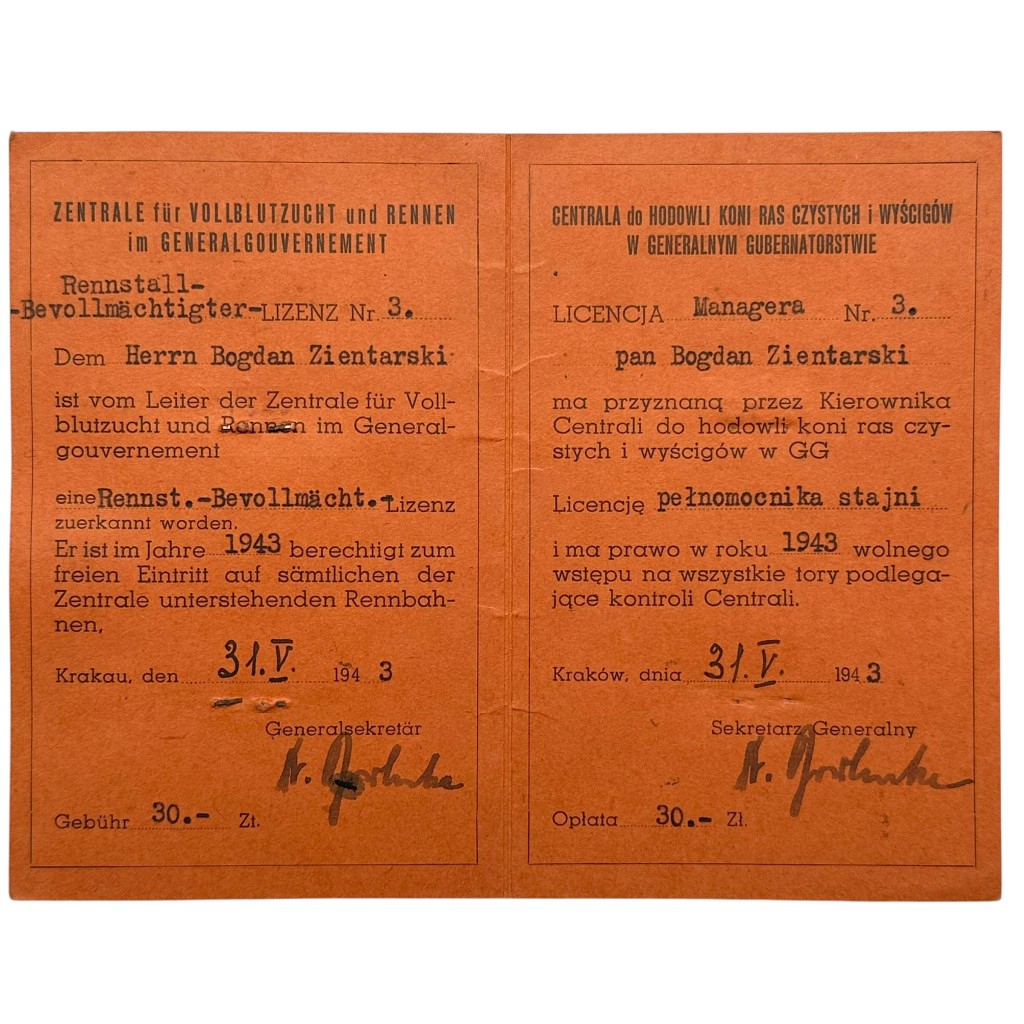 ZENTRALE für VOLLBLUTZUCHT und RENNEN
im GENERALGOUVERNEMENT
Rennstall-
-Bevollmächtigter-LIZENZ Nr. 3.
Dem Herrn Bogdan Zientarski
ist vom Leiter der Zentrale für Voll-
blutzucht und Rennen im General-
gouvernement
eine Rennst.-Bevollmächt.-Lizenz
zuerkannt worden.
Er ist im Jahre 1943 berechtigt zum
freien Eintritt auf sämtlichen der
Zentrale unterstehenden Rennbah-
nen,
Krakau, den 31.V. 194 3
Generalsekretär
Gebühr 30.- Zt.
CENTRALA do HODOWLI KONI RAS CZYSTYCH i WYŚCIGÓW
W GENERALNYM GUBERNATORSTWIE
LICENCJA Managera Nr. 3.
pan Bogdan Zientarski
ma przyznaną przez Kierownika
Centrali do hodowli koni ras czy-
stych i wyścigów w GG
Licencję pełnomocnika stajni
i ma prawo w roku 1943 wolnego
wstępu na wszystkie tory podlega-
jące kontroli Centrali.
Kraków, dnia 31.V. 194 3
Sekretarz Generalny
Opłata 30.- Zł.